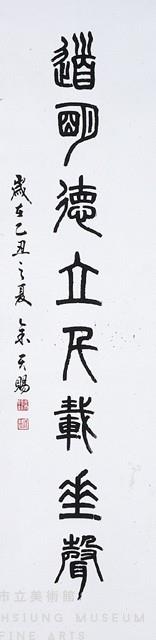 道明德立千載垂聲
歲在乙丑之夏 朱天賜
市立美術館
HSIUNG MUSEUM
FINE ARTS